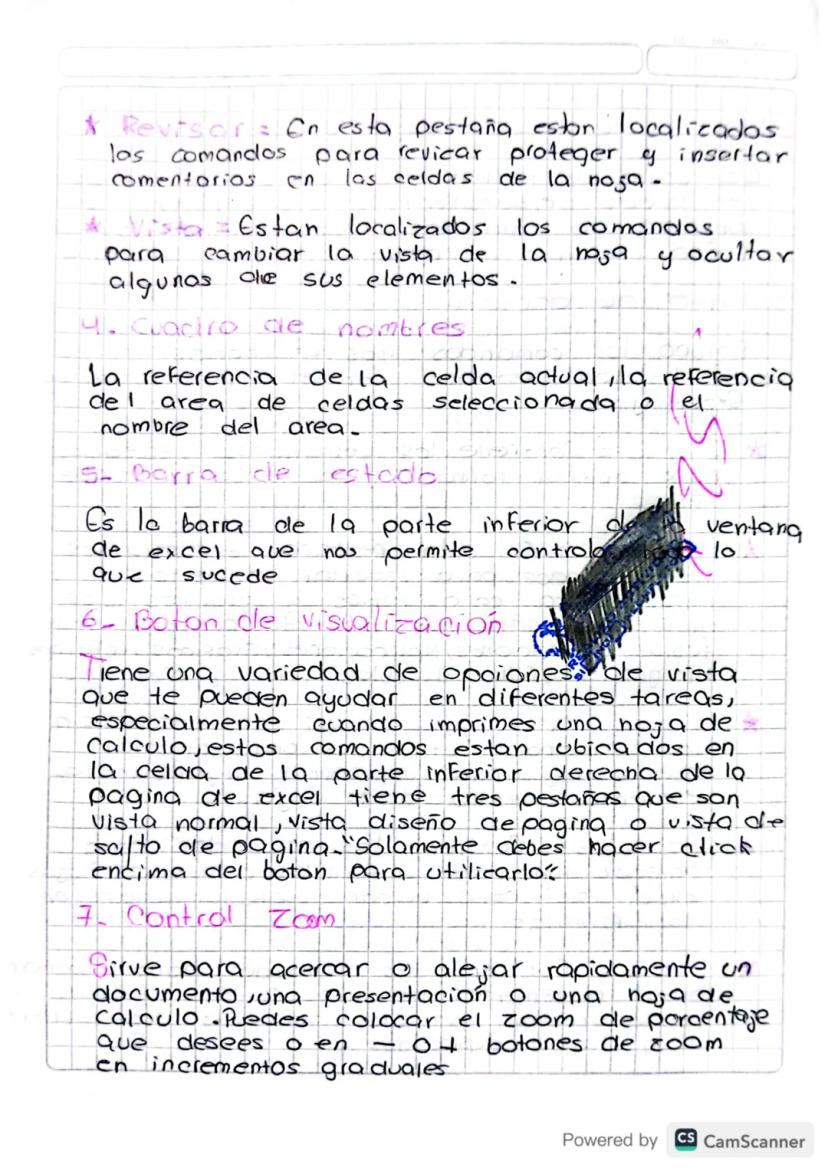 * Revisar = En esta pestaña estan localizados
los comandos para revicar proteger y insertar
comentarios en las celdas de la hoja.
* Vista = Estan localizados los comandos
para cambiar la vista de la hoja y ocultar
algunos de sus elementos.
4. Cuadro de nombres
La referencia de la celda actual, la referencia
del area de celdas seleccionada o el
nombre del area.
5- Barra de estado
Es la barra de la parte inferior de ventana
de excel que nos permite lo
que sucede
6- Boton de visualización
Tiene una variedad de opciones de vista
que te pueden ayudar en diferentes tareas,
especialmente cuando imprimes una hoja de
calculo, estos comandos estan ubicados en
la celda de la parte inferior derecha de la
pagina de excel tiene tres pestañas que son
vista normal, vista diseño de pagina o vista de
salto de pagina. "Solamente debes hacer click
encima del boton para utilicarlo"
7- Control Zoom
Sirve para acercar o alejar rapidamente un
documento, una presentación o una hoja de
calculo. Puedes colocar el zoom de porcentaje
que desees o en - o + botones de zoom
en incrementos graduales
Powered by CS CamScanner